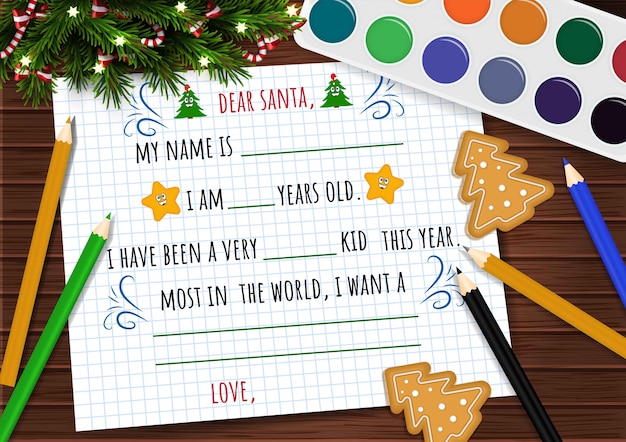 DEAR SANTA,
MY NAME IS
I AM YEARS OLD.
I HAVE BEEN A VERY KID THIS YEAR.
MOST IN THE WORLD, I WANT A
LOVE,